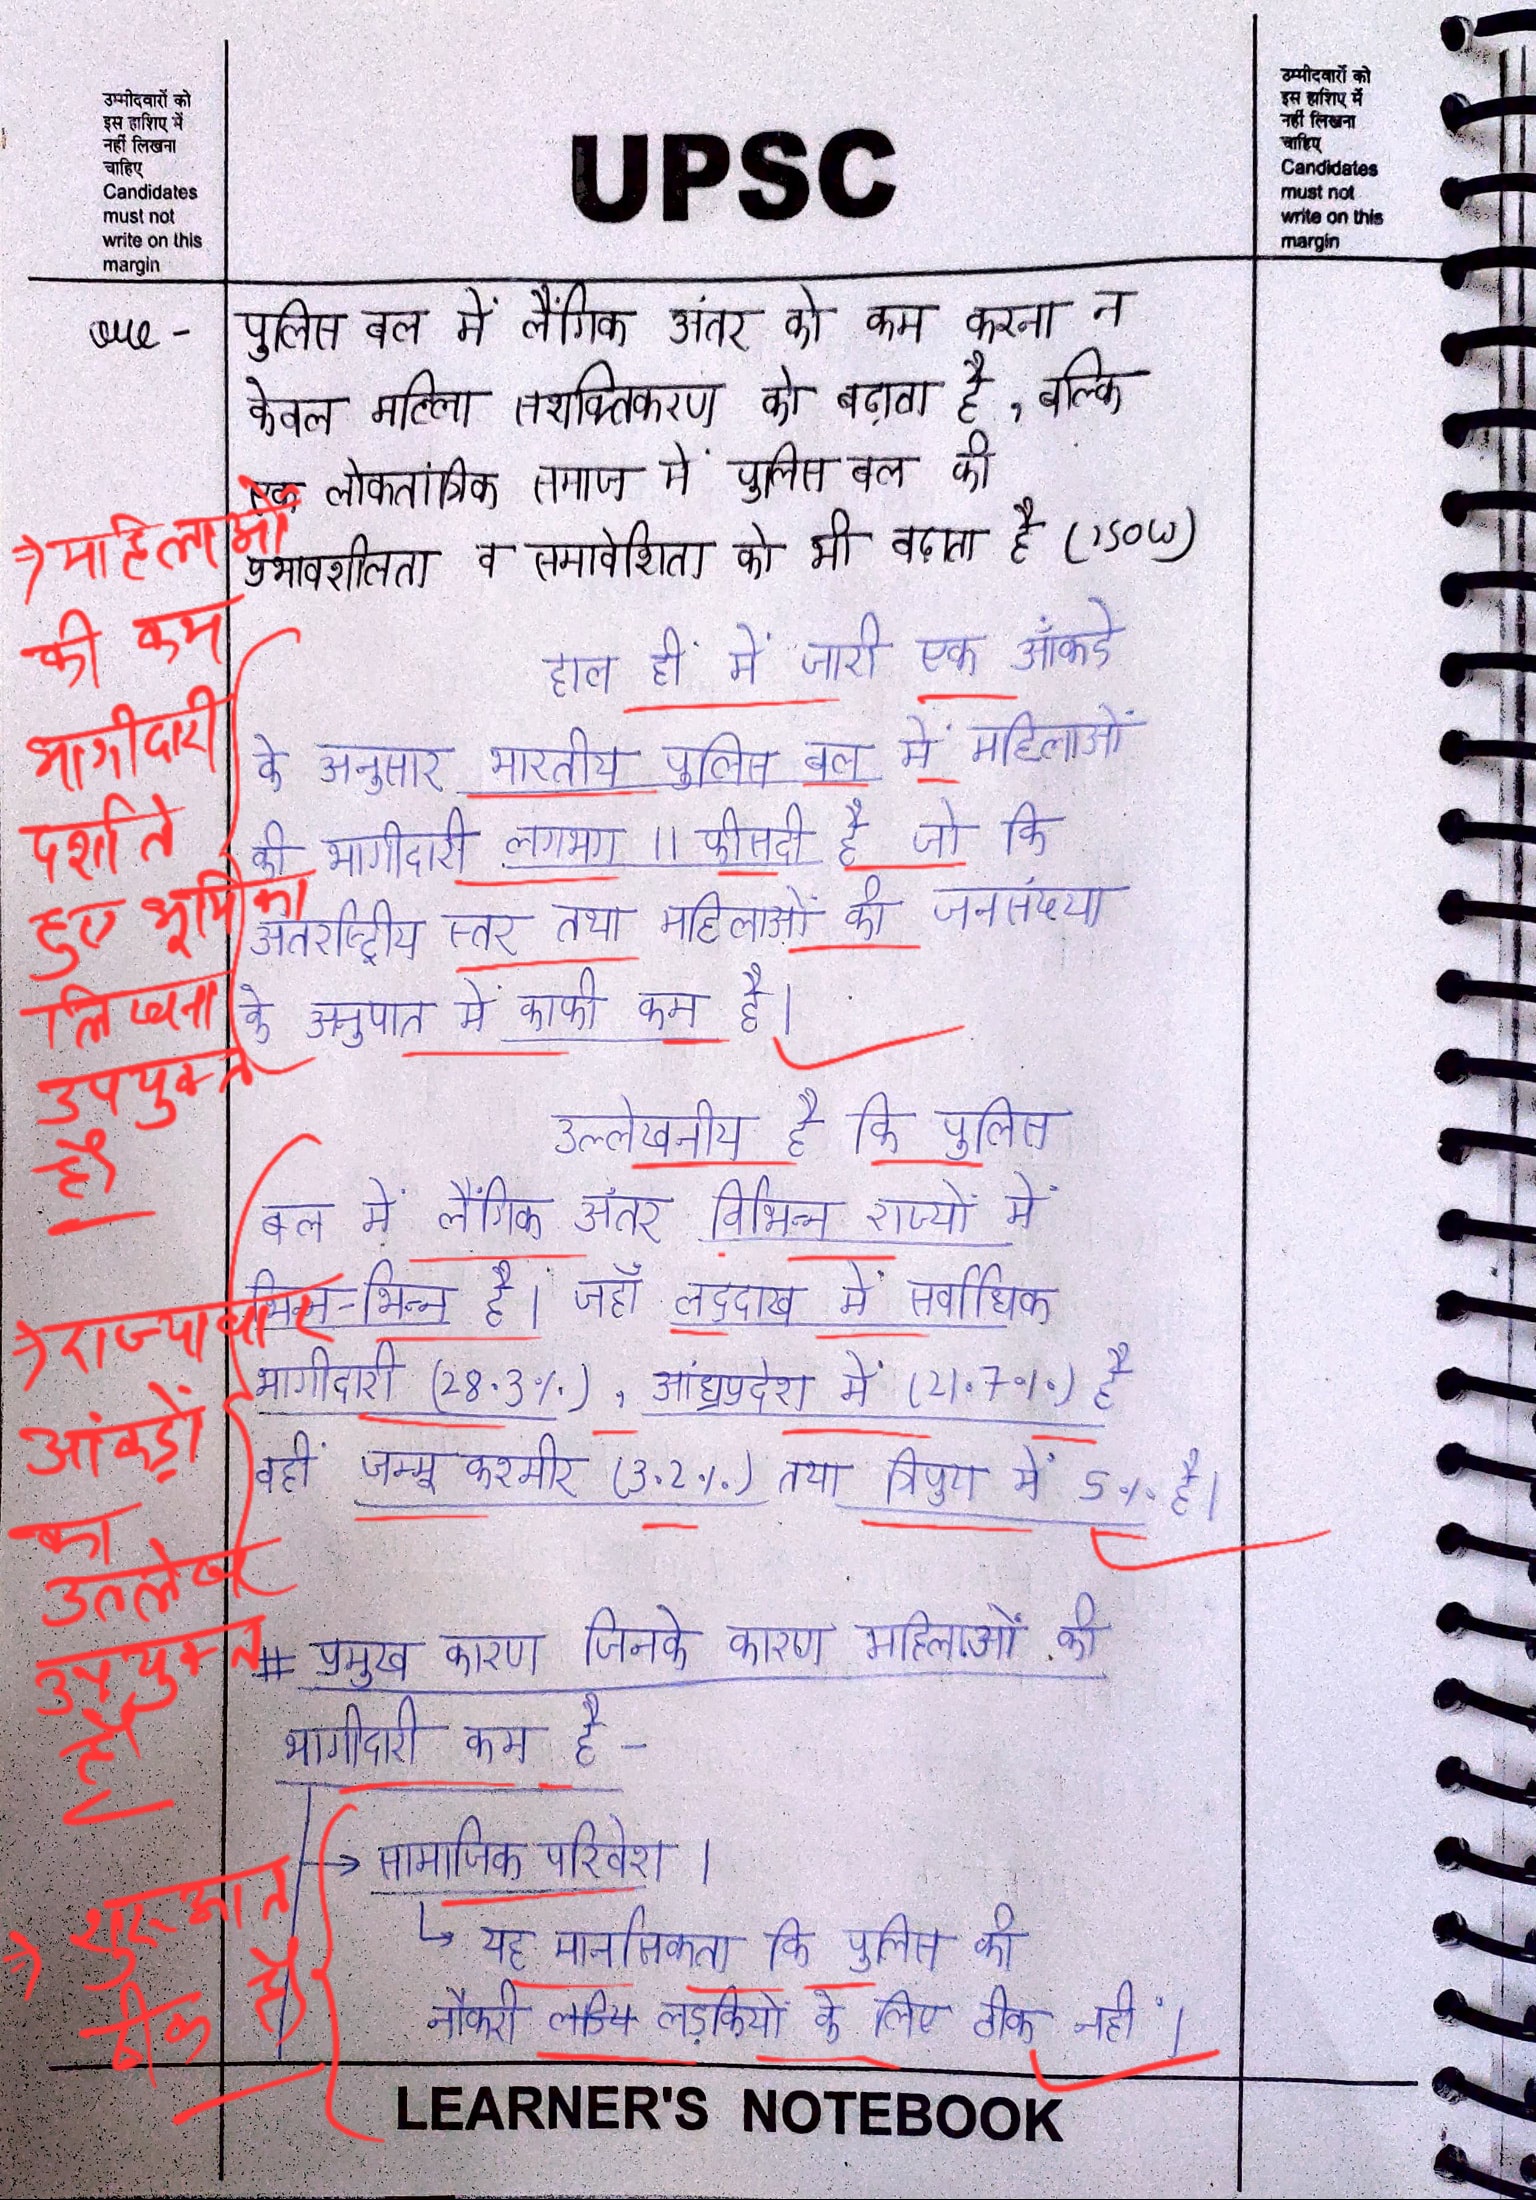 उम्मीदवारों को
इस हाशिए में
नहीं लिखना
चाहिए
Candidates
must not
write on this
margin
UPSC
उम्मीदवारों को
इस हाशिए में
नहीं लिखना
चाहिए
Candidates
must not
write on this
margin
Que - पुलिस बल में लैंगिक अंतर को कम करना न
केवल महिला सशक्तिकरण को बढ़ाता है, बल्कि
एक लोकतांत्रिक समाज में पुलिस बल की
प्रभावशीलता व समावेशिता को भी बढ़ाता है (150W)
हाल हीं में जारी एक आँकडे
के अनुसार भारतीय पुलिस बल में महिलाओं
की भागीदारी लगभग 11 फीसदी है जो कि
अंतर्राष्ट्रीय स्तर तथा महिलाओं की जनसंख्या
के अनुपात में काफी कम है।
उल्लेखनीय है कि पुलिस
बल में लैंगिक अंतर विभिन्न राज्यों में
भिन्न-भिन्न है। जहाँ लद्दाख में सर्वाधिक
भागीदारी (28.3%), आंध्रप्रदेश में (21.7%) है
वहीं जम्मू कश्मीर (3.2%) तथा त्रिपुरा में 5% है।
# प्रमुख कारण जिनके कारण महिलाओं की
भागीदारी कम है -
→ सामाजिक परिवेश।
↳ यह मानसिकता कि पुलिस की
नौकरी लड़कियों के लिए ठीक नहीं।
→ महिलाओं
की कम
भागीदारी
दर्शाते
हुए भूमिका
लिखना
उपयुक्त
है।
→ राज्यवार
आंकड़ों
का
उल्लेख
उपयुक्त
है।
→ शुरुआत
ठीक है।
LEARNER'S NOTEBOOK